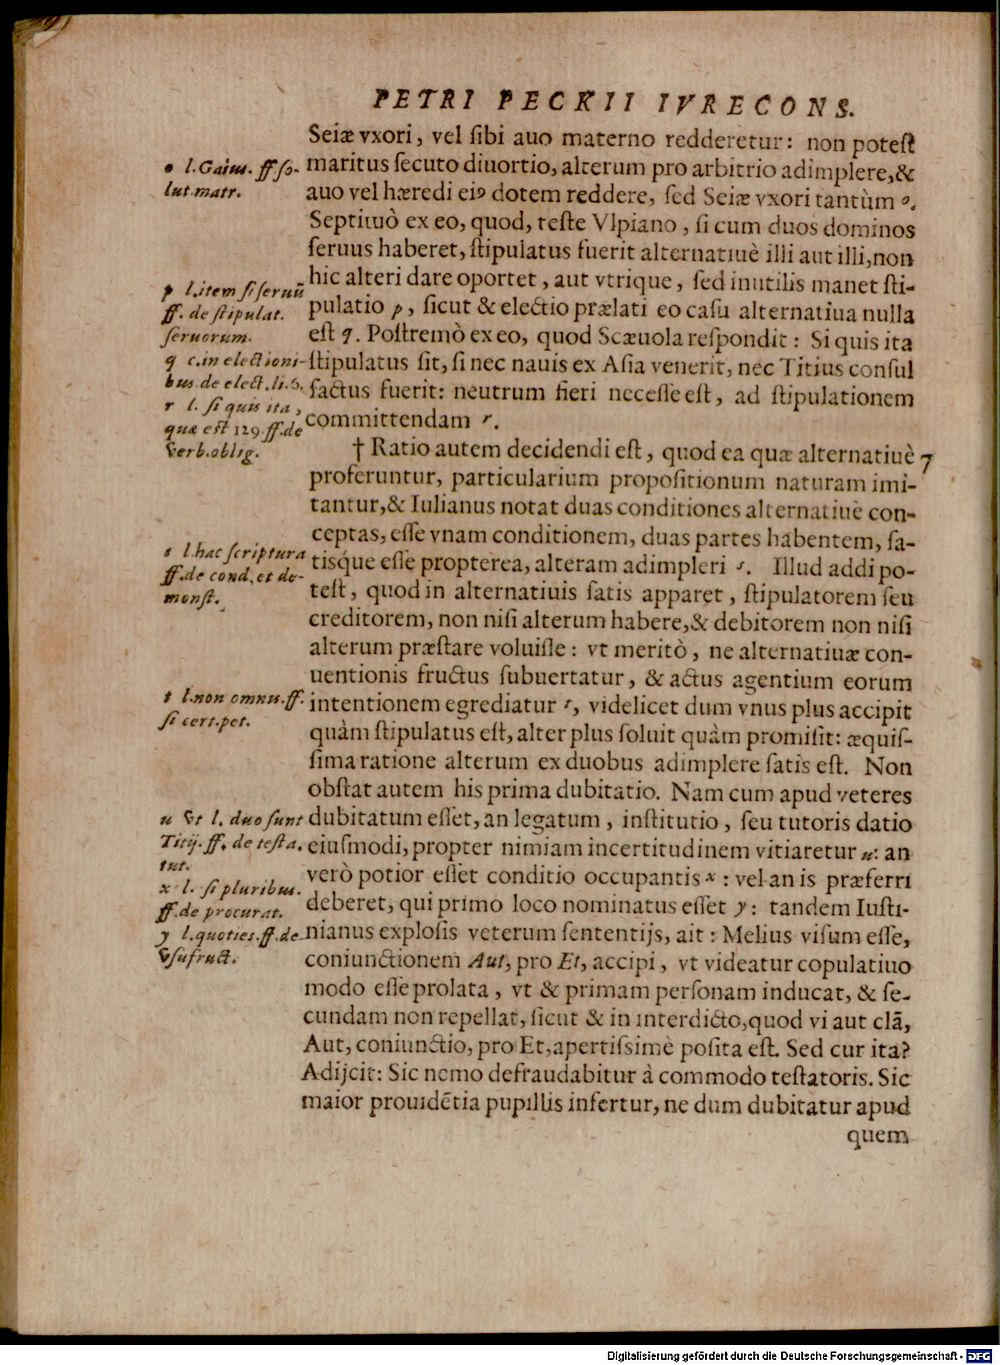 PETRI PECKII IVRECONS.
Seiæ vxori, vel ſibi auo materno redderetur: non poteſt
maritus ſecuto diuortio, alterum pro arbitrio adimplere,&
auo vel hæredi eiꝰ dotem reddere, ſed Seiæ vxori tantùm o.
Septimò ex eo, quod, teſte Vlpiano, ſi cum duos dominos
ſeruus haberet, ſtipulatus fuerit alternatiuè illi aut illi,non
hic alteri dare oportet, aut vtrique, ſed inutilis manet ſti-
pulatio p, ſicut & electio prælati eo caſu alternatiua nulla
eſt q. Poſtremò ex eo, quod Scæuola reſpondit: Si quis ita
ſtipulatus ſit, ſi nec nauis ex Aſia venerit, nec Titius conſul
factus fuerit: neutrum fieri neceſſe eſt, ad ſtipulationem
committendam r.
† Ratio autem decidendi eſt, quod ea quæ alternatiuè 7
proferuntur, particularium propoſitionum naturam imi-
tantur,& Iulianus notat duas conditiones alternatiuè con-
ceptas, eſſe vnam conditionem, duas partes habentem, ſa-
tisq́ue eſſe propterea, alteram adimpleri s. Illud addi po-
teſt, quod in alternatiuis ſatis apparet, ſtipulatorem ſeu
creditorem, non niſi alterum habere,& debitorem non niſi
alterum præſtare voluiſſe: vt meritò, ne alternatiuæ con-
uentionis fructus ſubuertatur, & actus agentium eorum
intentionem egrediatur t, videlicet dum vnus plus accipit
quàm ſtipulatus eſt, alter plus ſoluit quàm promiſit: æquiſ-
ſima ratione alterum ex duobus adimplere ſatis eſt. Non
obſtat autem his prima dubitatio. Nam cum apud veteres
dubitatum eſſet, an legatum, inſtitutio, ſeu tutoris datio
eiuſmodi, propter nimiam incertitudinem vitiaretur u: an
verò potior eſſet conditio occupantis x: vel an is præferri
deberet, qui primo loco nominatus eſſet y: tandem Iuſti-
nianus exploſis veterum ſententijs, ait: Melius viſum eſſe,
coniunctionem Aut, pro Et, accipi, vt videatur copulatiuo
modo eſſe prolata, vt & primam perſonam inducat, & ſe-
cundam non repellat, ſicut & in interdicto,quod vi aut clã,
Aut, coniunctio, pro Et,apertiſsimè poſita eſt. Sed cur ita?
Adijcit: Sic nemo defraudabitur à commodo teſtatoris. Sic
maior prouidẽtia pupillis infertur, ne dum dubitatur apud
quem
o l.Gaius. ff ſo-
lut.matr.
p l.item ſi ſeruũ
ff. de ſtipulat.
ſeruorum.
q c.in electioni-
bus de elect.li.6.
r l. ſi quis ita,
quæ eſt 129.ff.de
verb.oblig.
s l.hac ſcriptura
ff.de cond.et de-
monſt.
t l.non omnis.ff.
ſi cert.pet.
u vt l. duo ſunt
Titij.ff. de teſta.
tut.
x l. ſi pluribus.
ff.de procurat.
y l.quoties.ff.de
vſufruct.
Digitalisierung gefördert durch die Deutsche Forschungsgemeinschaft - DFG